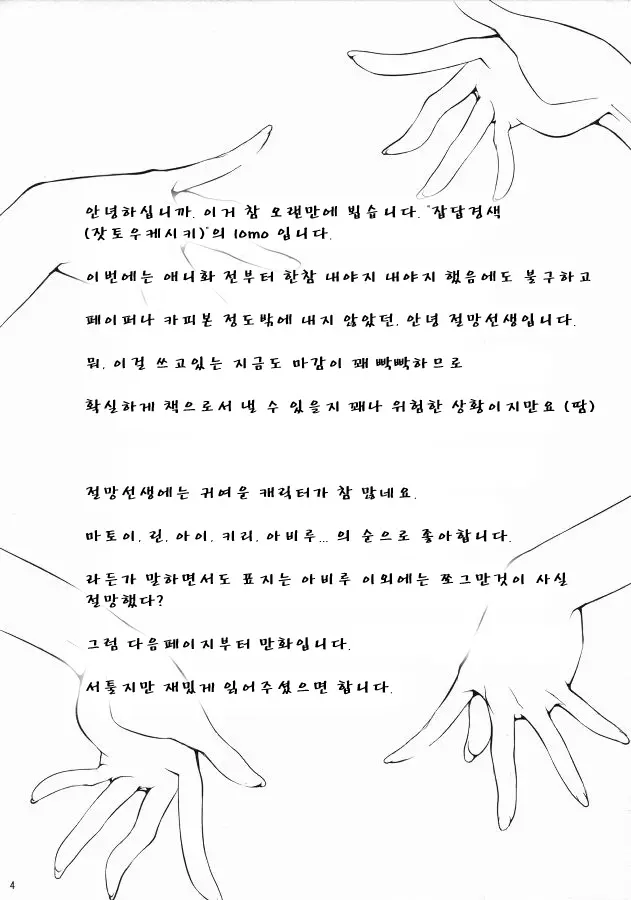 안녕하십니까. 이거 참 오랜만에 뵙습니다. "잡답경색
(잣토우케시키)"의 lomo 입니다.
이번에는 애니화 전부터 한참 내야지 내야지 했음에도 불구하고
페이퍼나 카피본 정도밖에 내지 않았던, 안녕 절망선생입니다.
뭐, 이걸 쓰고있는 지금도 마감이 꽤 빡빡하므로
확실하게 책으로서 낼 수 있을지 꽤나 위험한 상황이지만요 (땀)
절망선생에는 귀여운 캐릭터가 참 많네요.
마토이, 린, 아이, 키리, 아비루... 의 순으로 좋아합니다.
라든가 말하면서도 표지는 아비루 이외에는 쪼그만것이 사실
절망했다?
그럼 다음페이지부터 만화입니다.
서툴지만 재밌게 읽어주셨으면 합니다.
4